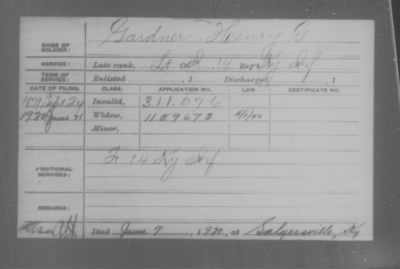 NAME OF SOLDIER: Gardner Henry G
SERVICE: Late rank, Lt Co. 14 Reg't Ky Inf
TERM OF SERVICE: Enlisted , 1 Discharged , 1
DATE OF FILING. CLASS. APPLICATION NO. LAW CERTIFICATE NO.
Invalid, 311,076
1920 June 21 Widow, 1159673
Minor,
ADDITIONAL SERVICES: F 14 Ky Inf
REMARKS:
Died June 7, 1920, at Salyersville, Ky